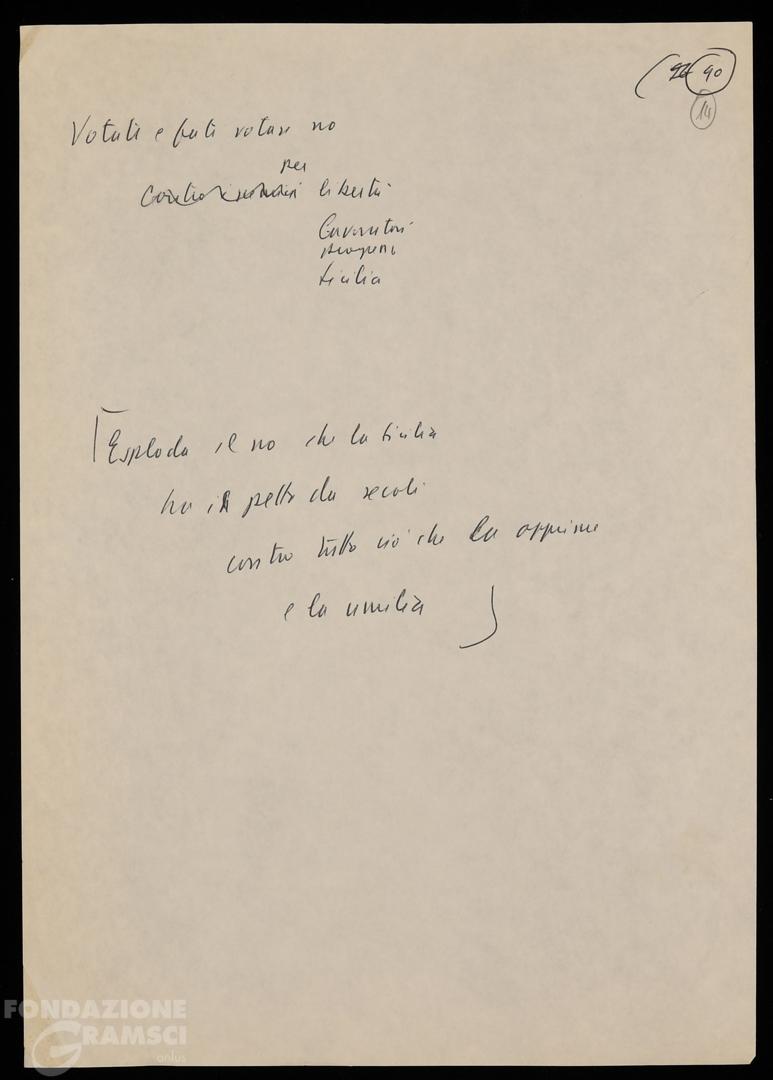 90
14
Votate e fate votare no
per
libertà
lavoratori
progresso
Sicilia
Esploda il no che la Sicilia
ha in petto da secoli
contro tutto ciò che la opprime
e la umilia
FONDAZIONE
GRAMSCI
onlus